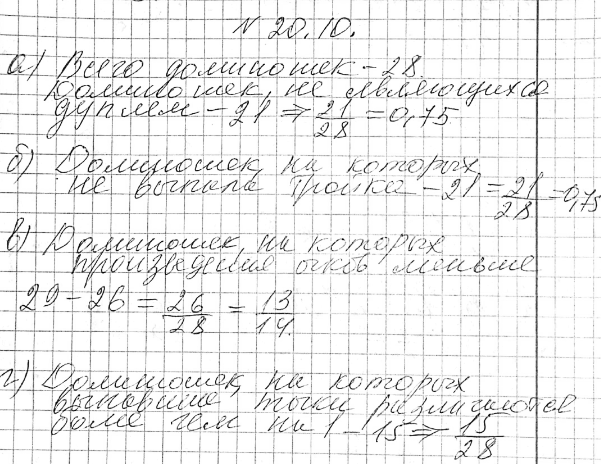 N 20.10.
а) Всего доминошек - 28.
Доминошек, не являющихся
дуплем - 21 ⇒ 21/28 = 0,75
б) Доминошек, на которых
не выпала тройка - 21 = 21/28 = 0,75
в) Доминошек, на которых
произведения очков меньше
29 - 26 = 26/28 = 13/14.
г) Доминошек, на которых
выпавшие точки различаются
более чем на 1 - 15 ⇒ 15/28